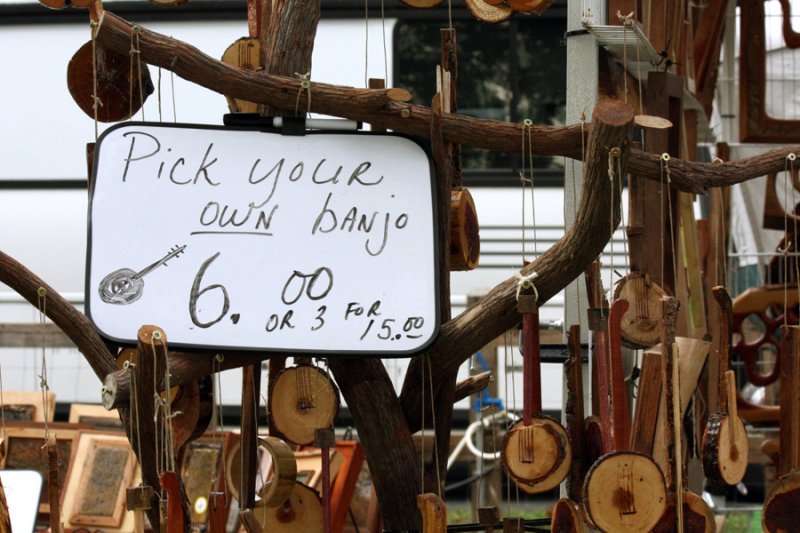 Pick your
OWN banjo
6.00
OR 3 FOR
15.00